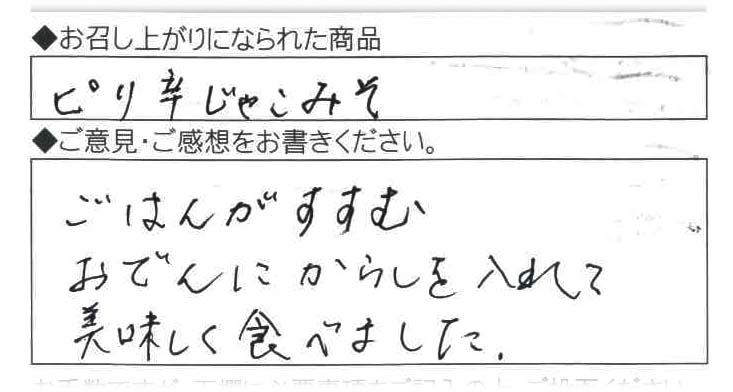 ◆お召し上がりになられた商品
ピリ辛じゃこみそ
◆ご意見・ご感想をお書きください。
ごはんがすすむ
おでんにからしを入れて
美味しく食べました.